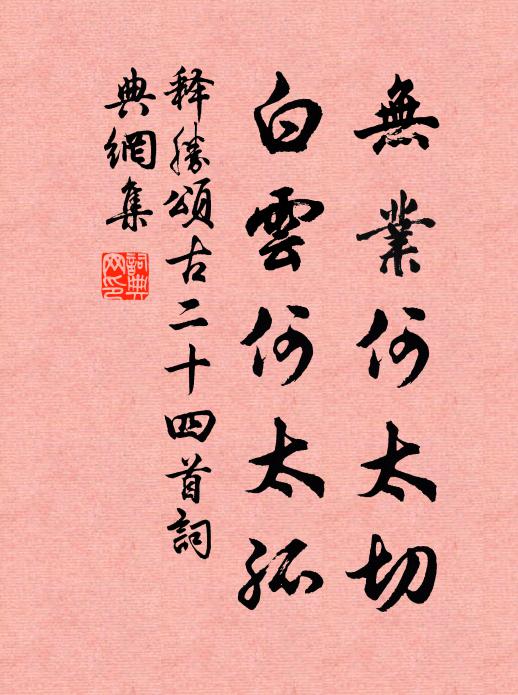 無業何太切
白雲何太孤
释勝頌古二十四首詞
典網集
詞典網印